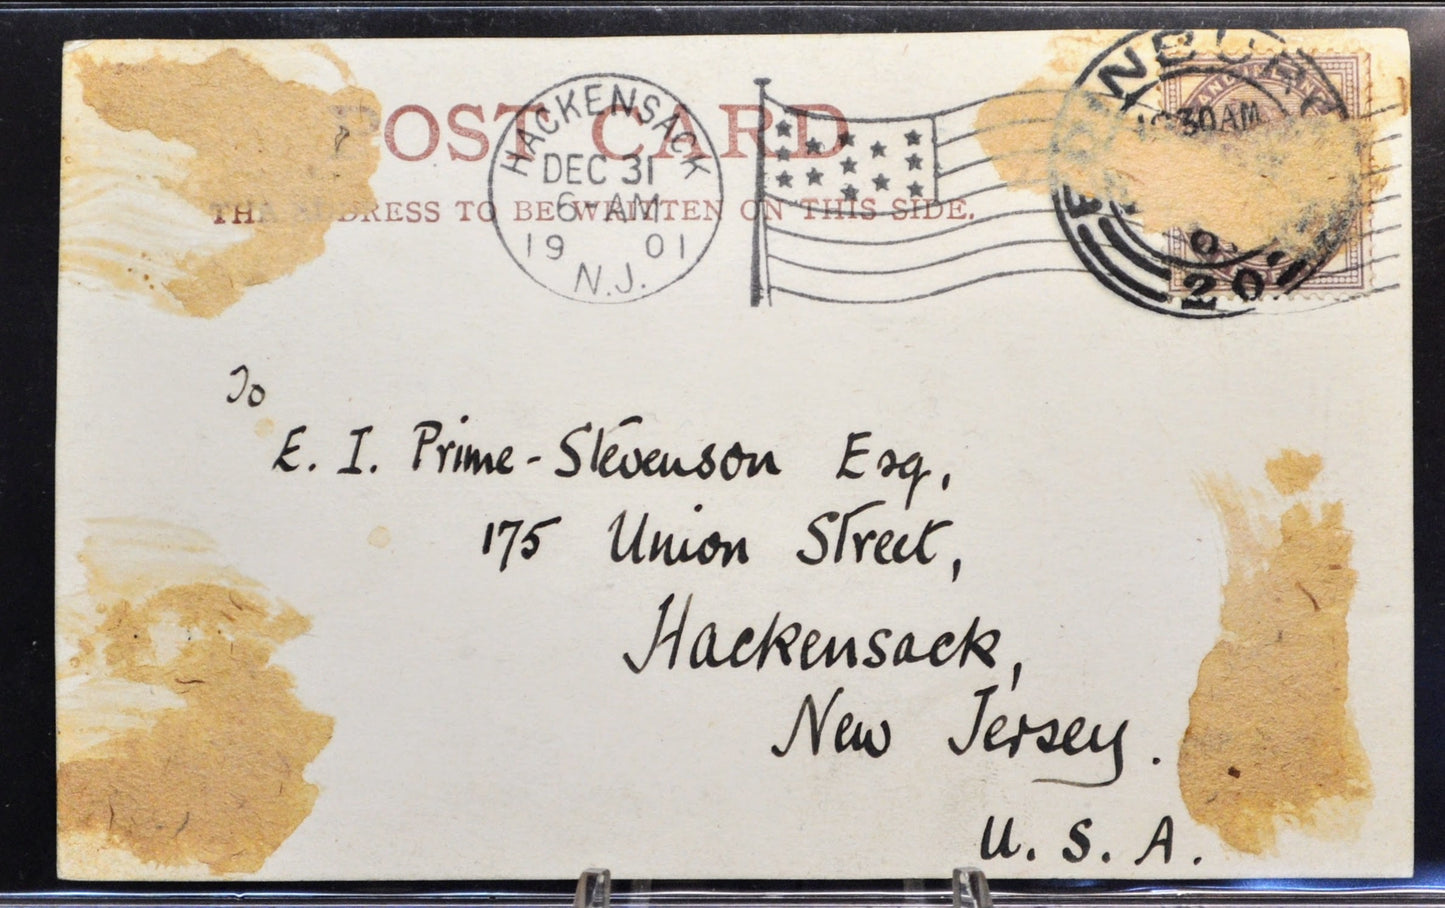 POST CARD
THE ADDRESS TO BE WRITTEN ON THIS SIDE.
HACKENSACK
DEC 31
6-AM
19 01
N.J.
30AM
To
E. I. Prime-Stevenson Esq,
175 Union Street,
Hackensack,
New Jersey.
U. S. A.